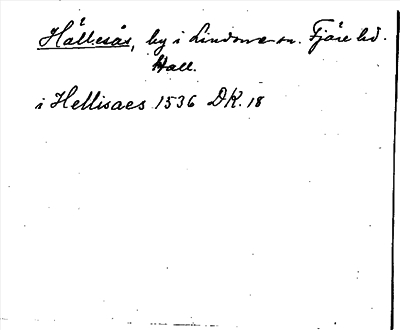 Hållesås, by i Lindome sn. Fjäre hd.
Hall.
i Hellisaes 1536 DK. 18